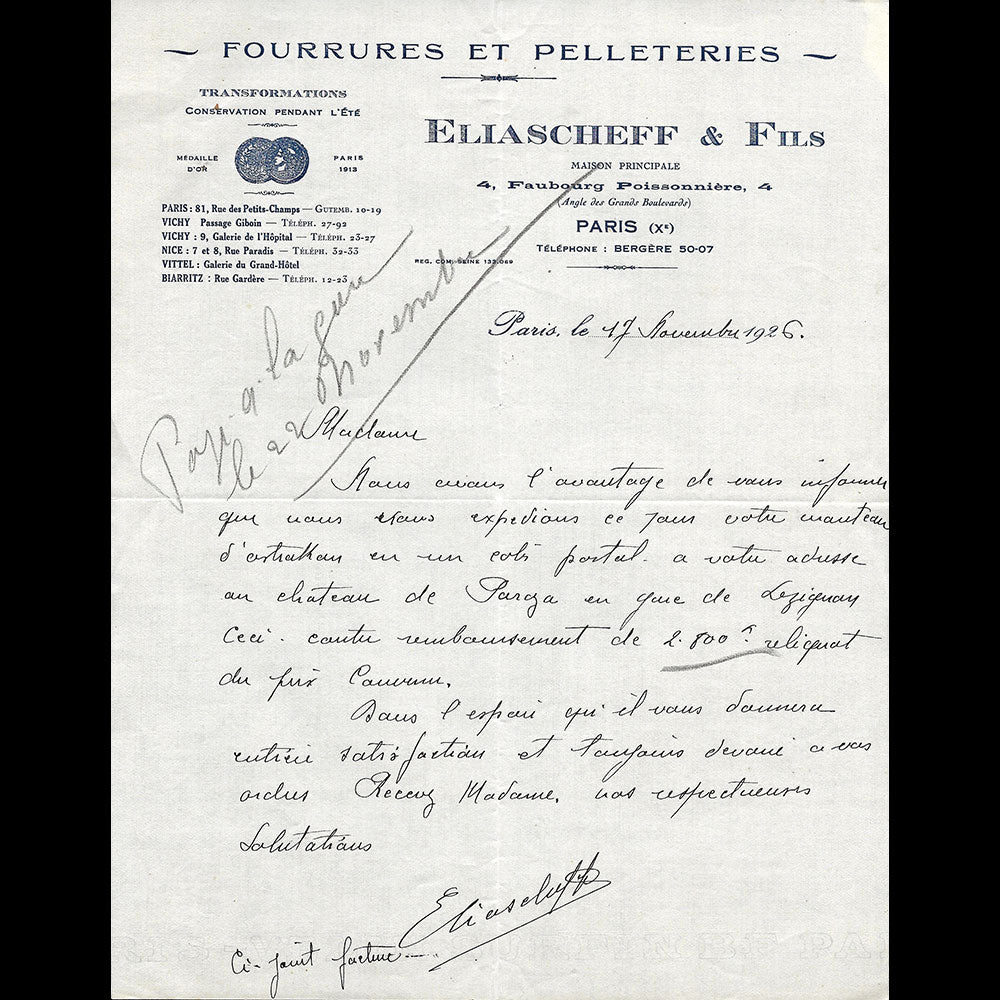 FOURRURES ET PELLETERIES
TRANSFORMATIONS
CONSERVATION PENDANT L'ÉTÉ
MÉDAILLE D'OR
PARIS 1913
PARIS : 81, Rue des Petits-Champs — GUTEMB. 10-19
VICHY Passage Giboin — TÉLÉPH. 27-92
VICHY : 9, Galerie de l'Hôpital — TÉLÉPH. 23-27
NICE : 7 et 8, Rue Paradis — TÉLÉPH. 32-33
VITTEL : Galerie du Grand-Hôtel
BIARRITZ : Rue Gardère — TÉLÉPH. 12-23
ELIASCHEFF & FILS
MAISON PRINCIPALE
4, Faubourg Poissonnière, 4
(Angle des Grands Boulevards)
PARIS (Xᵉ)
TÉLÉPHONE : BERGÈRE 50-07
REG. COM. SEINE 132.069
Paris, le 17 Novembre 1926.
Payé a la gare
le 22 Novembre
Madame
Nous avons l'avantage de vous informer
que nous vous expedions ce jour votre manteau
d'astrakan en un colis postal a votre adresse
au chateau de Paraza en gare de Lezignan
Ceci contre remboursement de 2.800 f. reliquat
du prix Convenu.
Dans l'espoir qu'il vous donnera
entière satisfaction et toujours dévoué a vos
ordres Recevez Madame, nos respectueuses
Salutations
Eliascheff
Ci-joint facture